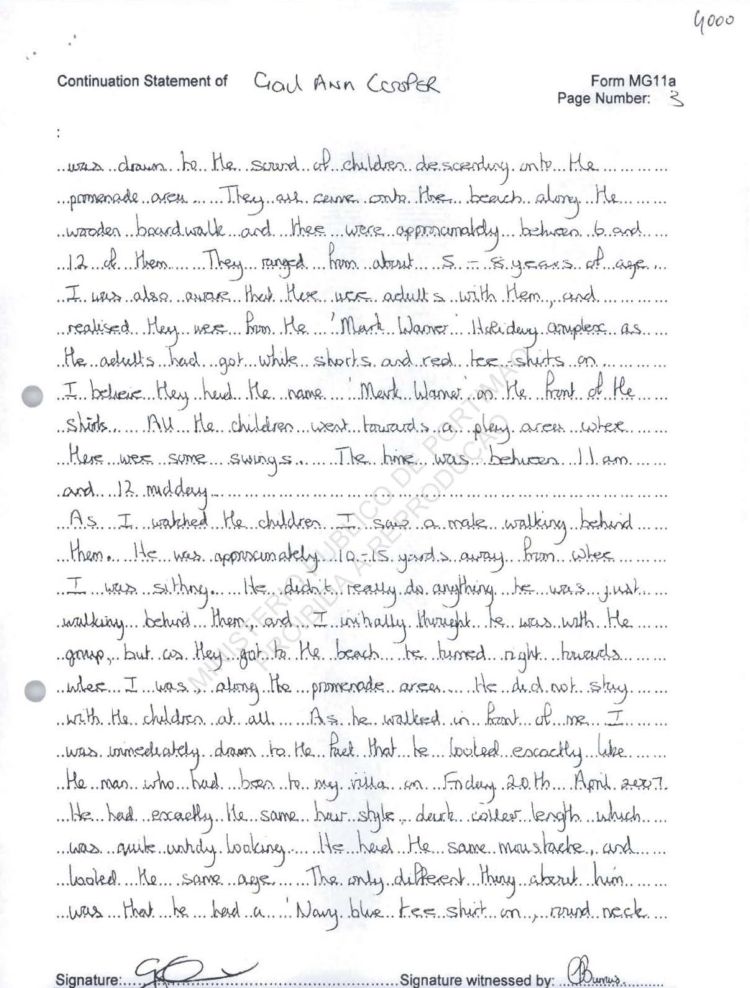 4000
Continuation Statement of GAIL ANN COOPER
Form MG11a
Page Number: 3
:
was drawn to the sound of children descending onto the
promenade area. They all came onto the beach along the
wooden boardwalk and there were approximately between 6 and
12 of them. They ranged from about 5 - 8 years of age.
I was also aware that there were adults with them, and
realised they were from the 'Mark Warner' Holiday complex as
the adults had got white shorts and red tee shirts on.
I believe they had the name 'Mark Warner' on the front of the
shirts. All the children went towards a play area where
there were some swings. The time was between 11 am
and 12 midday.
As I watched the children I saw a male walking behind
them. He was approximately 10-15 yards away from where
I was sitting. He didn't really do anything he was just
walking behind them, and I initially thought he was with the
group, but as they got to the beach he turned right towards
where I was, along the promenade area. He did not stay
with the children at all. As he walked in front of me I
was immediately drawn to the fact that he looked exactly like
the man who had been to my villa on Friday 20th April 2007.
He had exactly the same hair style, dark collar length which
was quite untidy looking. He had the same moustache, and
looked the same age. The only different thing about him
was that he had a 'Navy blue tee shirt on, round neck
MINISTERIO PUBLICO DE PORTIMAO
PROIBIDA A REPRODUÇÃO
Signature:
Signature witnessed by: